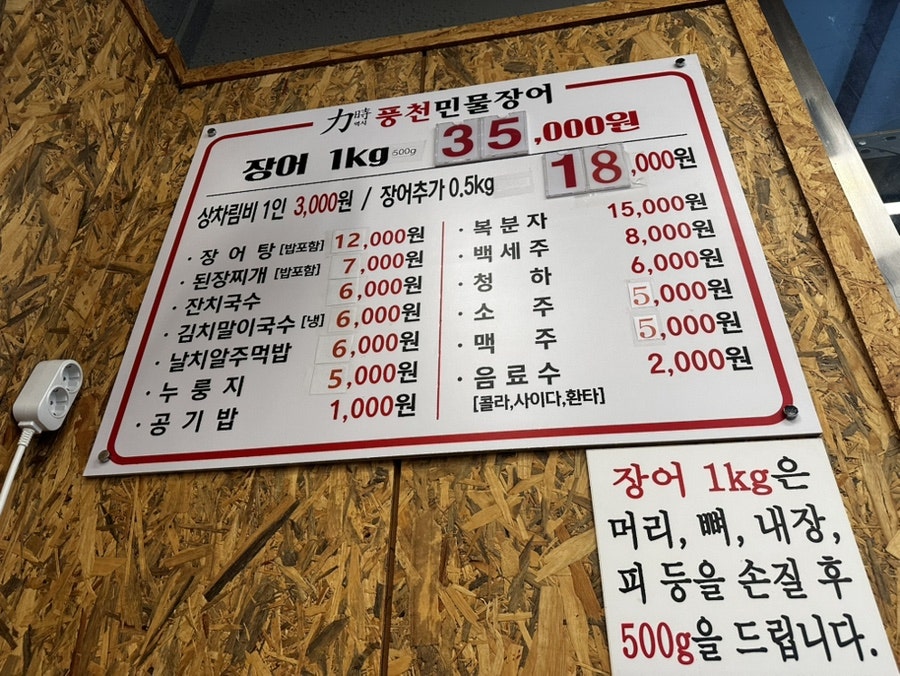 力時 역시 풍천민물장어
장어 1kg 500g 35,000원
상차림비 1인 3,000원 / 장어추가 0.5kg 18,000원
· 장어탕 [밥포함] 12,000원
· 된장찌개 [밥포함] 7,000원
· 잔치국수 6,000원
· 김치말이국수 [냉] 6,000원
· 날치알주먹밥 6,000원
· 누룽지 5,000원
· 공기밥 1,000원
· 복분자 15,000원
· 백세주 8,000원
· 청하 6,000원
· 소주 5,000원
· 맥주 5,000원
· 음료수 2,000원
[콜라,사이다,환타]
장어 1kg은
머리, 뼈, 내장,
피 등을 손질 후
500g을 드립니다.